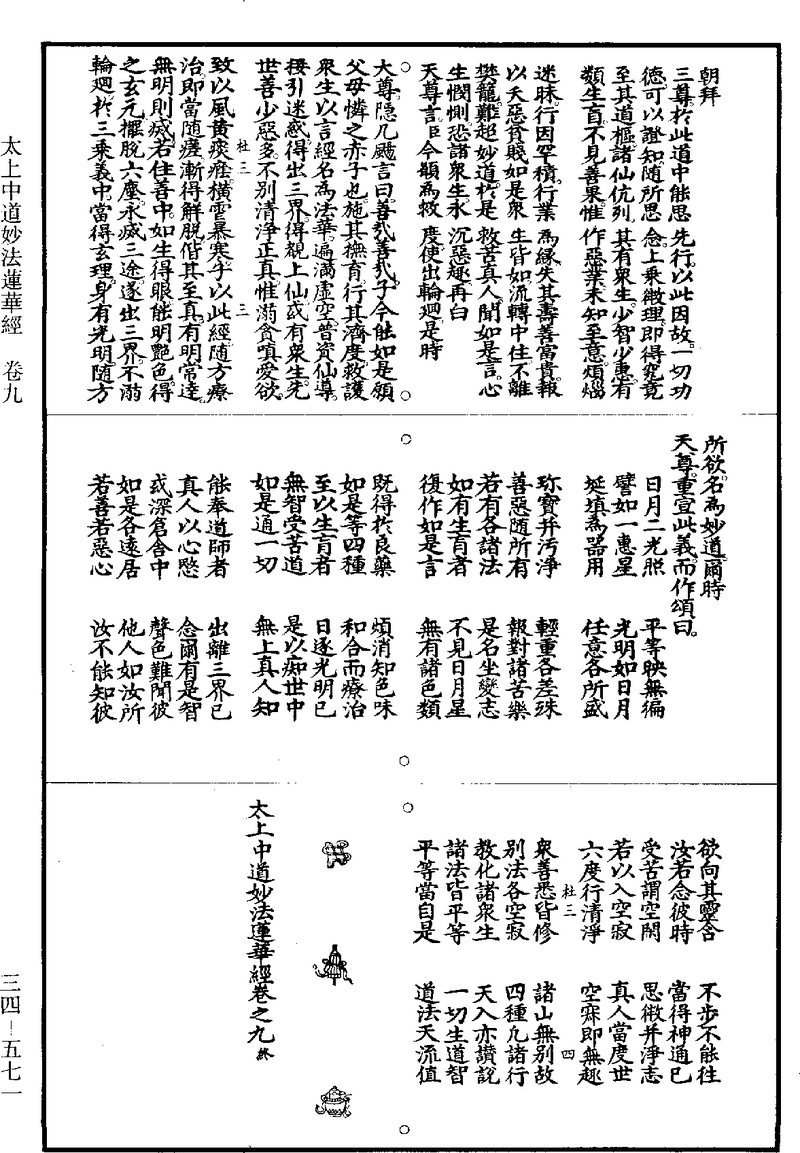 朝拜
三尊於此道中能思先行以此因故一切功
德可以證知隨所思念上乘微理即得究竟
至其道樞諸仙伉列其有衆生少智少惠有
類生盲不見善果惟作惡業未知至意煩惱
迷昧行因罕積行業為緣失其壽善富貴報
以夭惡貧賤如是衆生皆如流轉中住不離
樊籠難超妙道於是救苦真人聞如是言心
生憫惻恐諸衆生永沉惡趣再白
天尊言臣今願為救度使出輪廻是時
大尊隱几颺言曰善哉善哉子今能如是願
父母憐之赤子也施其撫育行其濟度救護
衆生以言經名為法華遍滿虛空普資仙導
接引迷惑得出三界得覩上仙或有衆生先
世善少惡多不別清淨正真惟溺貪嗔愛欲
杜三 三
致以風黃痰痊橫雲暴寒乎以此經隨方療
治即當隨瘥漸得解脫偕其至真有明常達
無明則滅若住善中如生得眼能明艷色得
之玄元擺脫六塵永滅三途遂出三界不溺
輪廻於三乘義中當得玄理身有光明隨方
所欲名為妙道爾時
天尊重宣此義而作頌曰
日月二光照 平等映無徧
譬如一惠星 光明如日月
埏填為器用 任意各所盛
珎寶并汚淨 輕重各差殊
善惡隨所有 報對諸苦樂
若有各諸法 是名坐變志
如有生盲者 不見日月星
復作如是言 無有諸色類
既得於良藥 煩消知色味
如是等四種 和合而療治
至以生盲者 日逐光明已
無智受苦道 是以痴世中
如是通一切 無上真人知
能奉道師者 出離三界已
真人以心愍 念爾有是智
或深倉舍中 聲色難聞彼
如是各遠居 他人如汝所
若善若惡心 汝不能知彼
欲向其靈舍 不步不能往
汝若念彼時 當得神通已
受苦謂空閑 思微并淨志
若以入空寂 真人當度世
六度行清淨 空寂即無趣
杜三 四
衆善悉皆修 諸山無別故
別法各空寂 四種凡諸行
教化諸衆生 天入亦讚說
諸法皆平等 一切生道智
平等當自是 道法天流值
太上中道妙法蓮華經卷之九 終
太上中道妙法蓮華經 卷九
三四—五七一